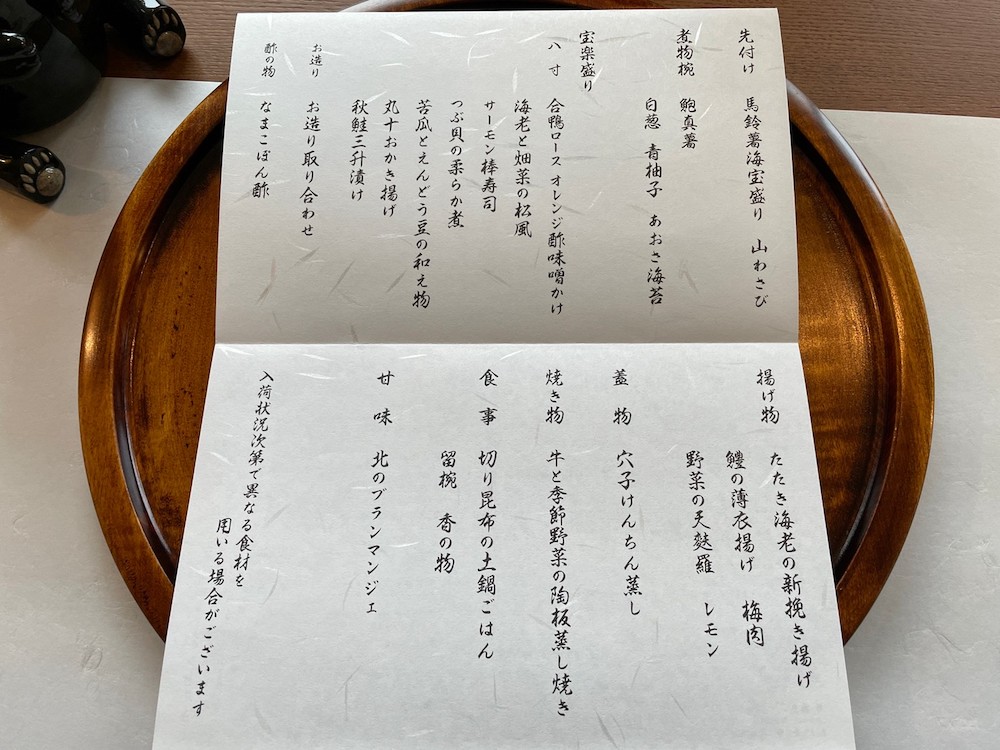 先付け 馬鈴薯海宝盛り 山わさび
煮物椀 鮑真薯
白葱 青柚子 あおさ海苔
宝楽盛り
八寸 合鴨ロース オレンジ酢味噌かけ
海老と畑菜の松風
サーモン棒寿司
つぶ貝の柔らか煮
苦瓜とえんどう豆の和え物
丸十おかき揚げ
秋鮭三升漬け
お造り お造り取り合わせ
酢の物 なまこぽん酢
揚げ物 たたき海老の新挽き揚げ
鱧の薄衣揚げ 梅肉
野菜の天麩羅 レモン
蓋物 穴子けんちん蒸し
焼き物 牛と季節野菜の陶板蒸し焼き
食事 切り昆布の土鍋ごはん
留椀 香の物
甘味 北のブランマンジェ
入荷状況次第で異なる食材を
用いる場合がございます